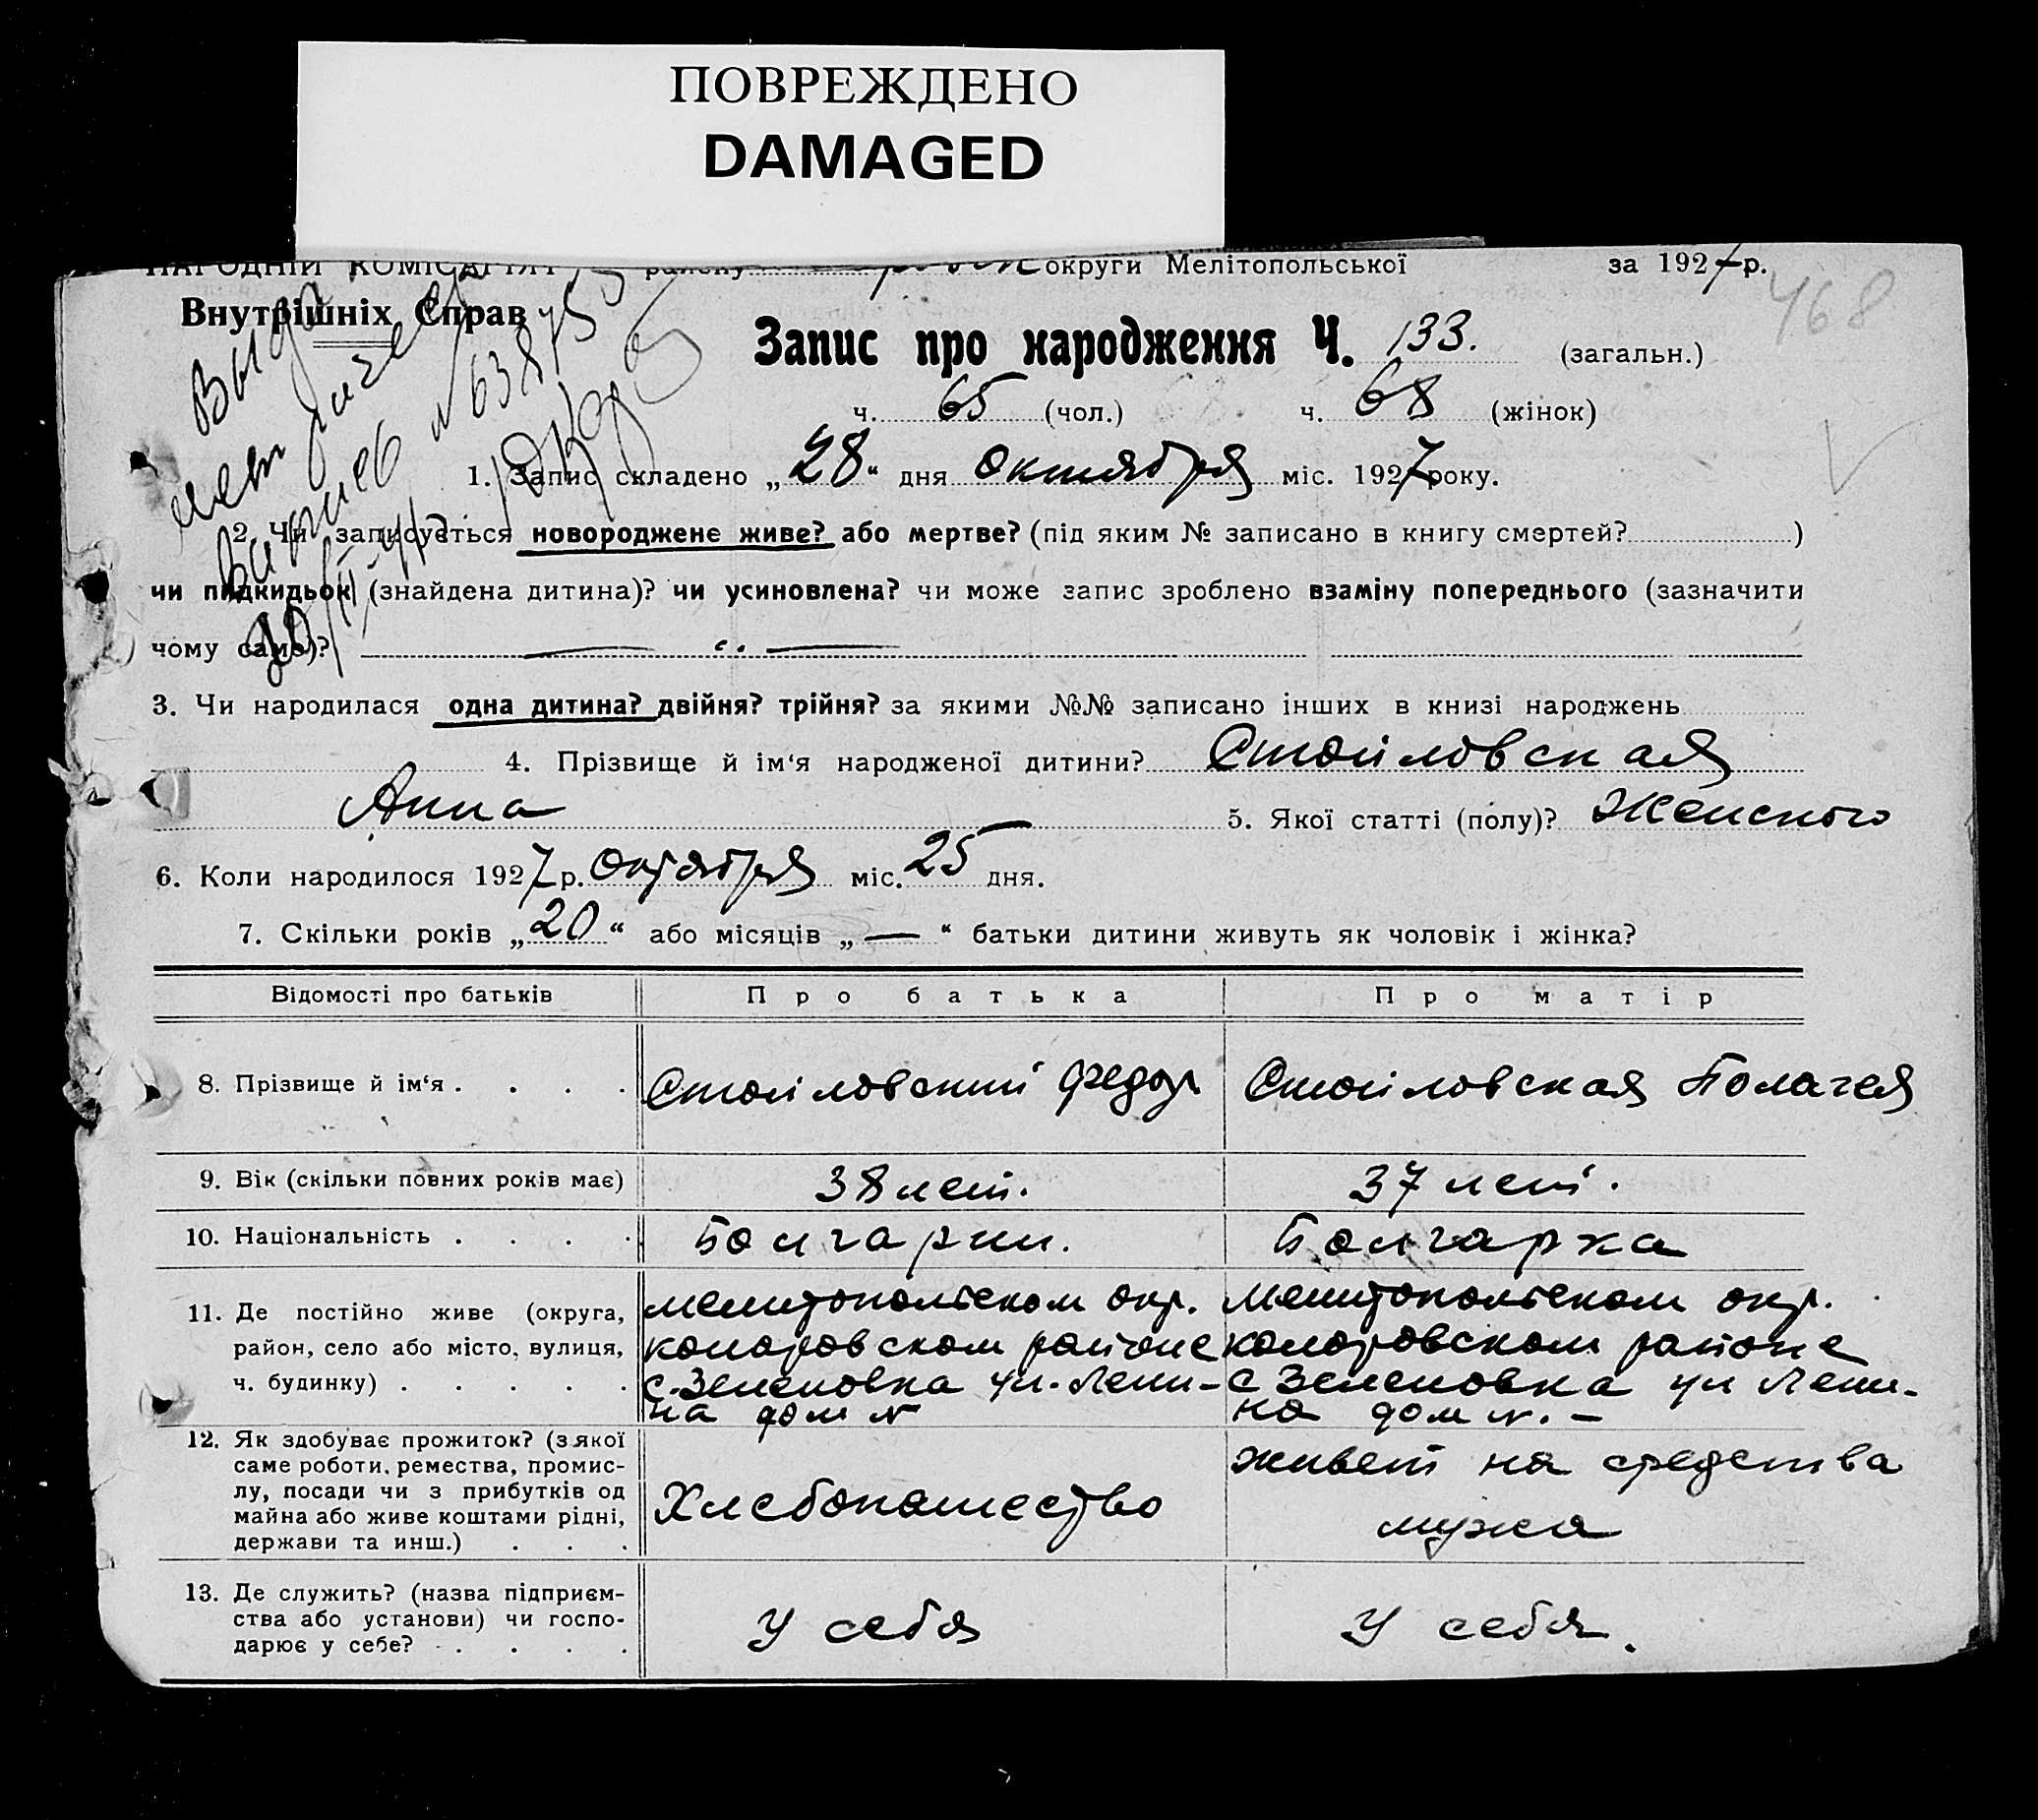 ПОВРЕЖДЕНО
DAMAGED
НАРОДНІЙ КОМІСАРІЯТ
району округи Мелітопольської за 1927 р.
Внутрішніх Справ
468
Запис про народження Ч. 133. (загальн.)
ч. 65 (чол.) ч. 68 (жінок)
№ 63875
1. Запис складено „28“ дня Октября міс. 1927 року.
2. Чи записується новороджене живе? або мертве? (під яким № записано в книгу смертей? )
чи підкидьок (знайдена дитина)? чи усиновлена? чи може запис зроблено взаміну попереднього (зазначити
чому саме)?
3. Чи народилася одна дитина? двійня? трійня? за якими №№ записано інших в книзі народжень
4. Прізвище й ім‘я народженої дитини? Стоиловская
Анна 5. Якої статті (полу)? Женского
6. Коли народилося 1927 р. Октября міс. 25 дня.
7. Скільки років „20“ або місяців „—“ батьки дитини живуть як чоловік і жінка?
Відомості про батьків Про батька Про матір
8. Прізвище й ім‘я . . . . Стоиловский Федор Стоиловская Полагея
9. Вік (скільки повних років має) 38 лет. 37 лет.
10. Національність . . . . Болгарин. Болгарка
11. Де постійно живе (округа, мелитопольском окр. мелитопольском окр.
район, село або місто, вулиця, коларовском районе коларовском районе
ч. будинку) . . . . . с. Зеленовка ул. Лени- с Зеленовка ул Лени-
на дом № на дом №. —
12. Як здобуває прожиток? (з якої
саме роботи, ремества, промис-
лу, посади чи з прибутків од
майна або живе коштами рідні,
держави та инш.) . . .
Хлебопашество
живет на средства
мужа
13. Де служить? (назва підприєм-
ства або установи) чи госпо-
дарює у себе? . . . .
У себя У себя.